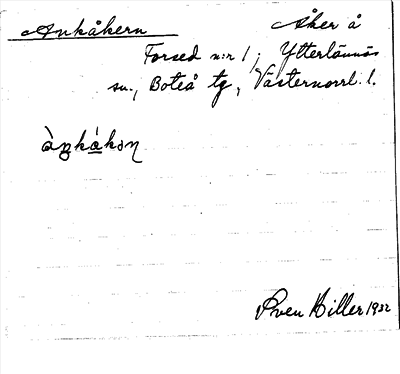 Ankåkern Åker å
Forsed n:r 1, Ytterlännäs
sn., Boteå tg, Västernorrl. l.
àŋkåkəɳ
Sven Hiller 1932